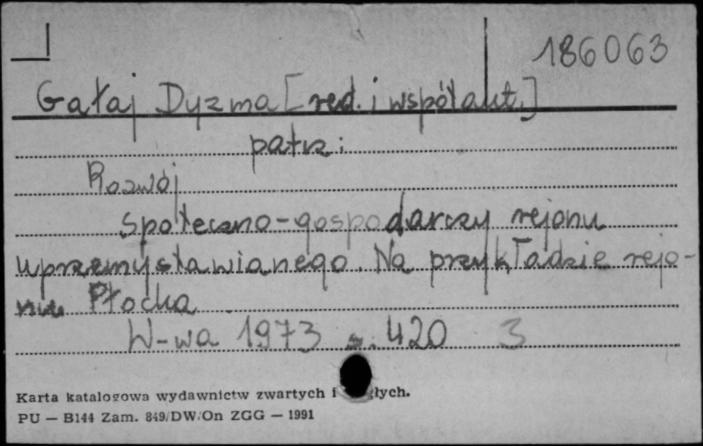 186063
Gałaj Dyzma [red. i współaut.]
patrz:
Rozwój
społeczno-gospodarczy rejonu
uprzemysławianego. Na przykładzie rejo-
nu Płocka
W-wa 1973 s. 420 3
Karta katalogowa wydawnictw zwartych i
PU — B144 Zam. 849/DW/On ZGG — 1991